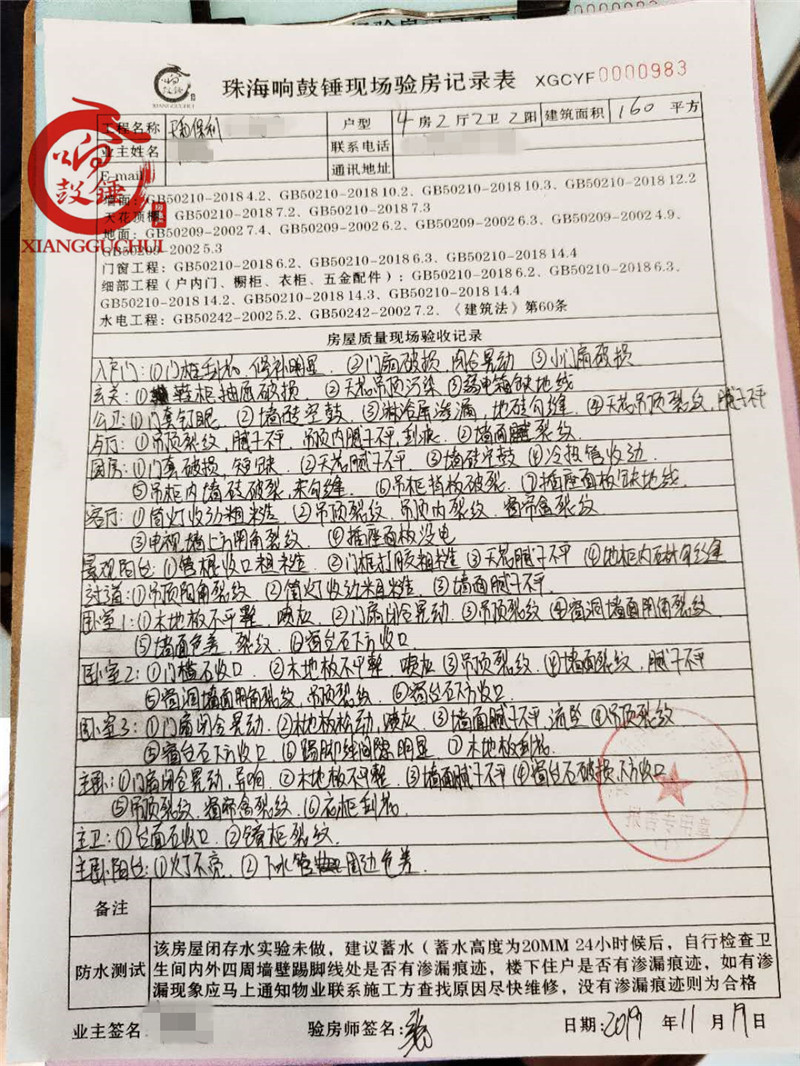 响鼓锤
XIANGGUCHUI
珠海响鼓锤现场验房记录表 XGCYF0000983
工程名称 保利 户型 4房2厅2卫2阳 建筑面积 160 平方
业主姓名 联系电话
E-mail 通讯地址
墙面：GB50210-2018 4.2、GB50210-2018 10.2、GB50210-2018 10.3、GB50210-2018 12.2
天花顶棚：GB50210-2018 7.2、GB50210-2018 7.3
地面：GB50209-2002 7.4、GB50209-2002 6.2、GB50209-2002 6.3、GB50209-2002 4.9、
GB50209-2002 5.3
门窗工程：GB50210-2018 6.2、GB50210-2018 6.3、GB50210-2018 14.4
细部工程（户内门、橱柜、衣柜、五金配件）：GB50210-2018 6.2、GB50210-2018 6.3、
GB50210-2018 14.2、GB50210-2018 14.3、GB50210-2018 14.4
水电工程：GB50242-2002 5.2、GB50242-2002 7.2、《建筑法》第60条
房屋质量现场验收记录
入户门：①门框刮花，修补明显 ②门扇破损，闭合晃动 ③小门扇破损
玄关：①鞋柜抽底破损 ②天花吊顶污染 ③弱电箱缺地线
公卫：①门套钉眼 ②墙砖空鼓 ③淋浴屏渗漏，地砖勾缝 ④天花吊顶裂纹，腻子不平
①吊顶裂纹，腻子不平，吊顶内腻子不平，刮痕 ②墙面裂纹
厨房：①门套破损，短缺 ②天花腻子不平 ③墙砖空鼓 ④冷热管收边
⑤吊柜内墙砖破裂，未勾缝 ⑥吊柜挡板破裂 ⑦插座面板缺地线
客厅：①筒灯收边粗糙 ②吊顶裂纹，吊顶内裂纹，窗帘盒裂纹
③电视墙上方阴角裂纹 ④插座面板没电
景观阳台：①管根收口粗糙 ②门框打胶粗糙 ③天花腻子不平 ④地柜内石材勾缝
过道：①吊顶阳角裂纹 ②筒灯收边粗糙 ③墙面腻子不平
卧室1：①木地板不平整，喷灰 ②门扇闭合晃动 ③吊顶裂纹 ④窗洞墙面阴角裂纹
⑤墙面色差，裂纹 ⑥窗台石下方收口
卧室2：①门槛石收口 ②木地板不平整，喷灰 ③吊顶裂纹 ④墙面裂纹，腻子不平
⑤窗洞墙面阴角裂纹，吊顶裂纹 ⑥窗台石下方收口
卧室3：①门扇闭合晃动 ②木地板松动，喷灰 ③墙面腻子不平，流坠 ④吊顶裂纹
⑤窗台石下方收口 ⑥踢脚线间隙明显 ⑦木地板刮花
主卧：①门扇闭合晃动，异响 ②木地板不平整 ③墙面腻子不平 ④窗台石破损，下方收口
⑤吊顶裂纹，窗帘盒裂纹 ⑥衣柜刮花
主卫：①台面石收口 ②镜柜裂纹
主卧阳台：①灯不亮 ②下水管周边色差
报告专用章
备注
防水测试 该房屋闭存水实验未做，建议蓄水（蓄水高度为20MM 24小时候后，自行检查卫
生间内外四周墙壁踢脚线处是否有渗漏痕迹，楼下住户是否有渗漏痕迹，如有渗
漏现象应马上通知物业联系施工方查找原因尽快维修，没有渗漏痕迹则为合格
业主签名： 验房师签名： 日期：2019 年 11 月 19 日